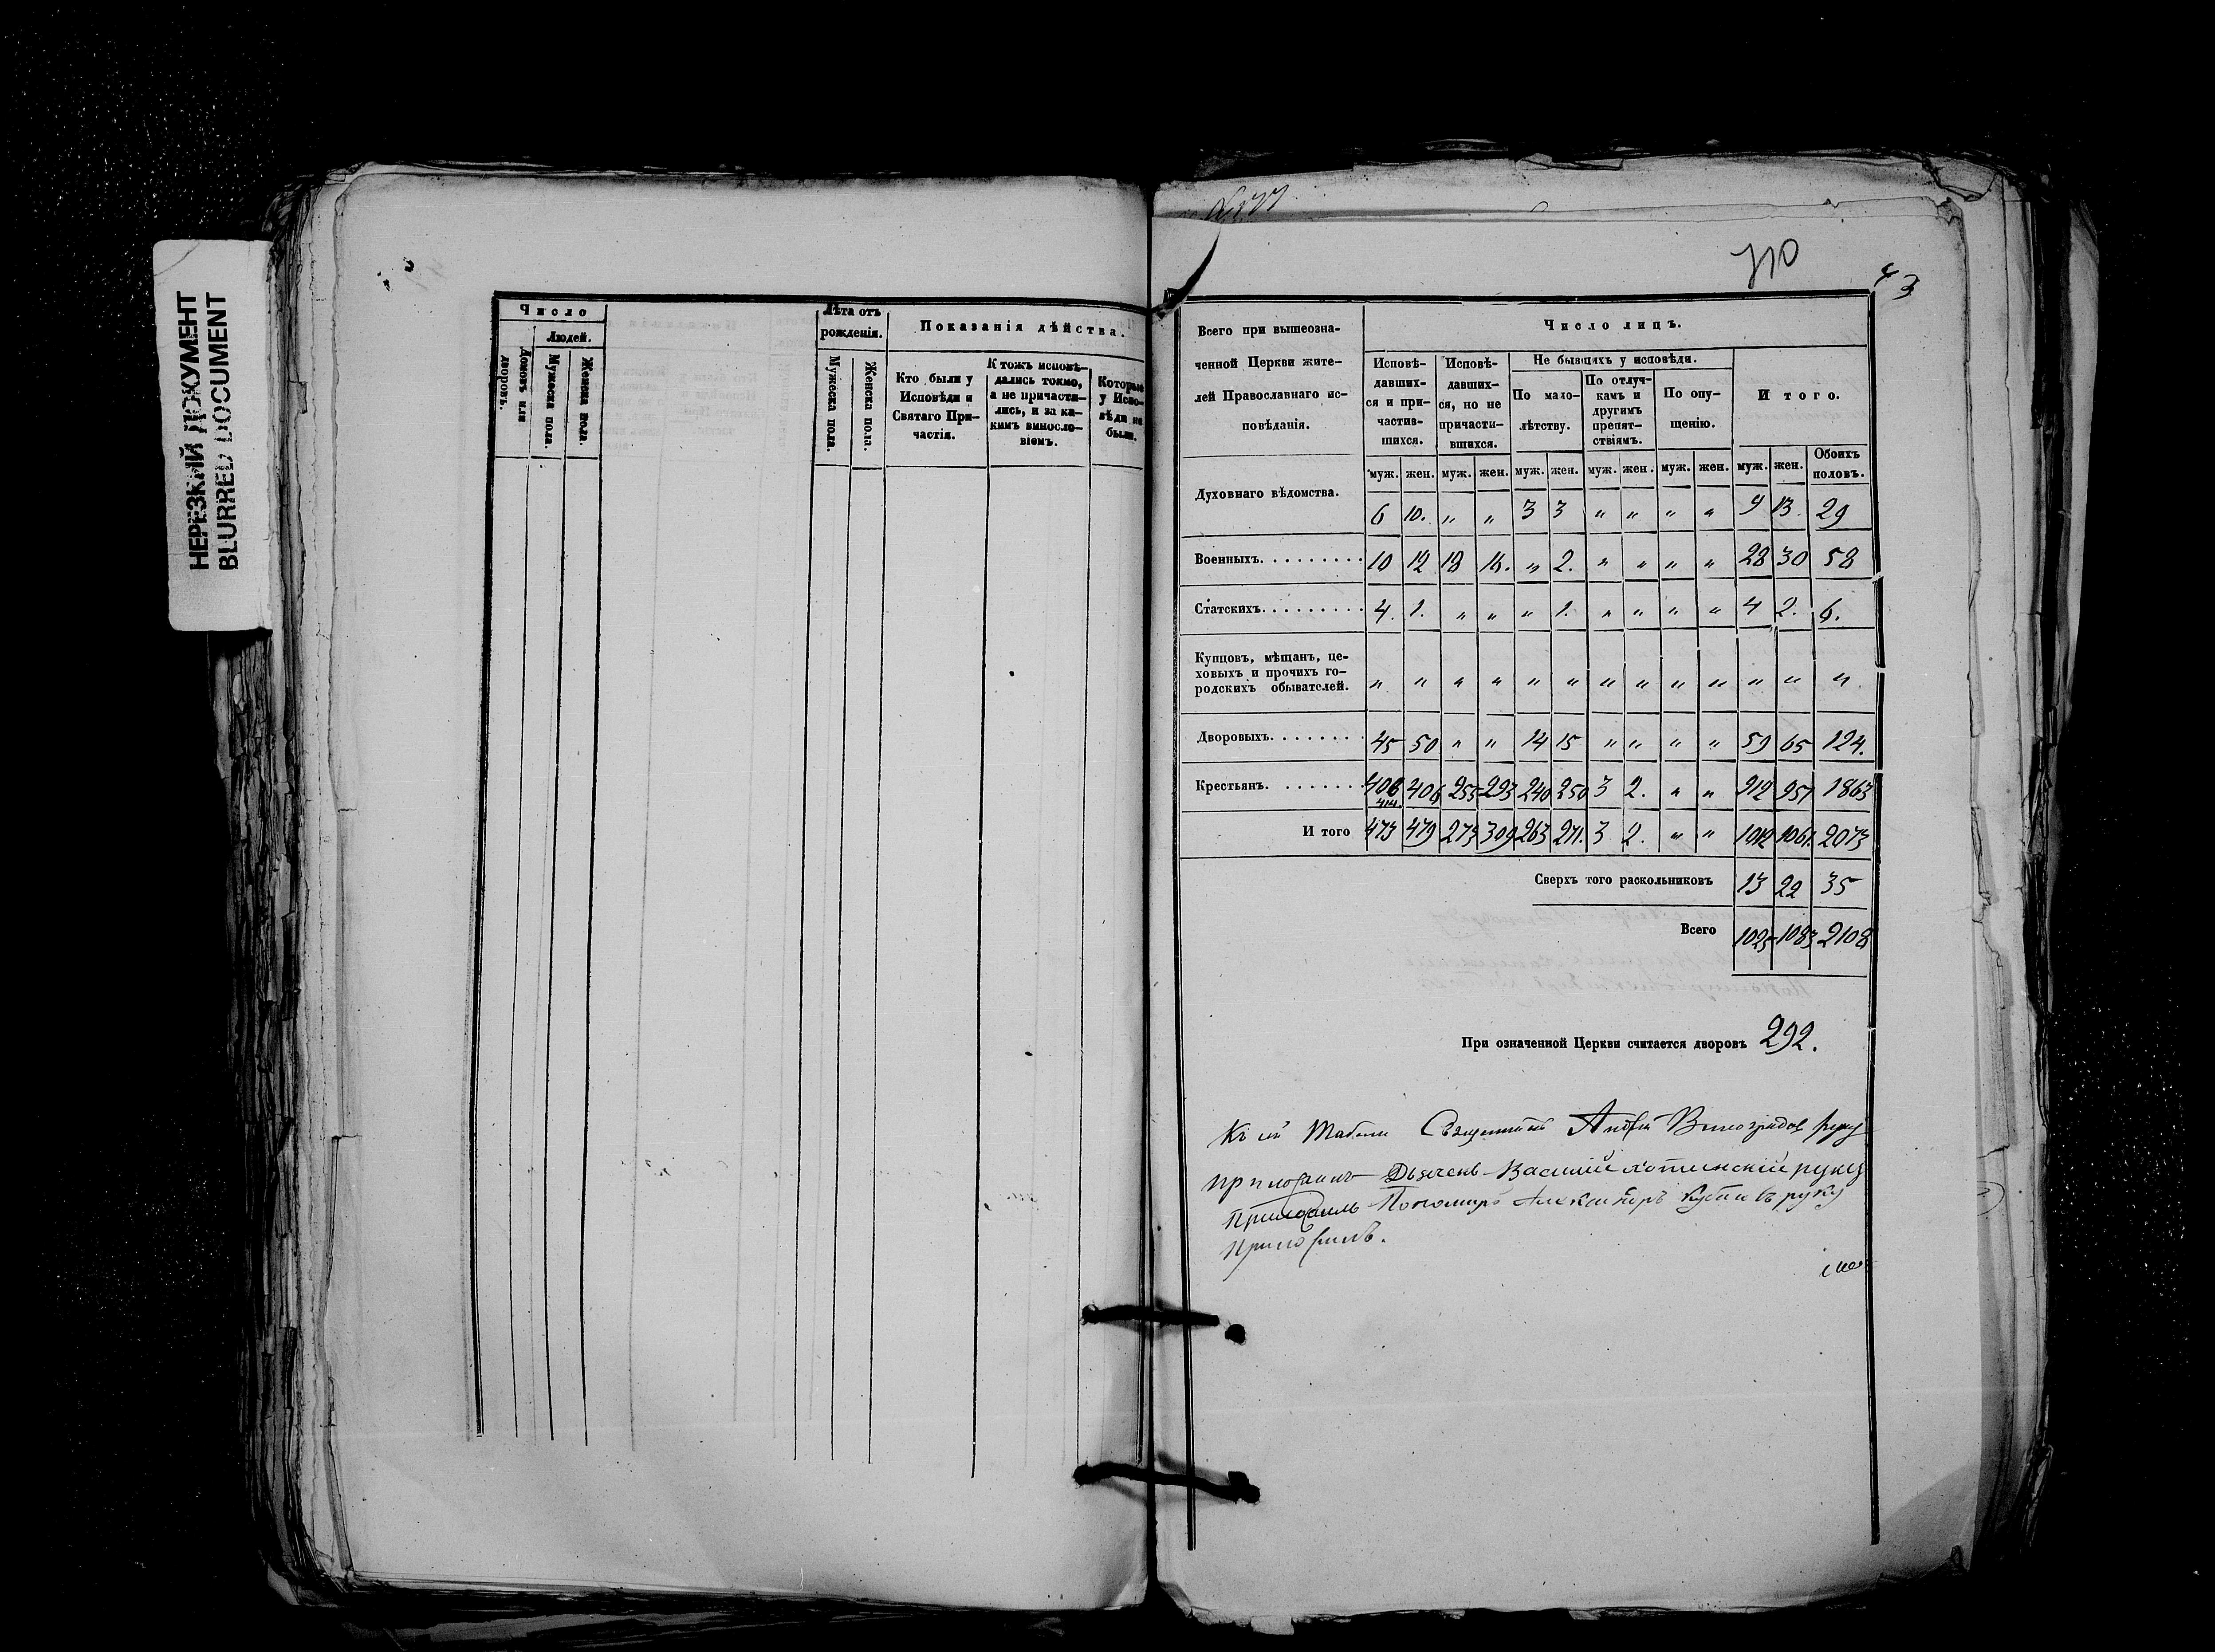 НЕРЕЗКИЙ ДОКУМЕНТ
BLURRED DOCUMENT
Число
Людей.
Домовъ или дворовъ.
Мужеска пола.
Женска пола.
Лѣта отъ рожденія.
Мужеска пола.
Женска пола.
Показанія дѣйства.
Кто были у
Исповѣди и
Святаго При-
частія.
К тожъ исповѣ-
дались токмо,
а не причасти-
лись, и за ка-
кимъ винослo-
віемъ.
Которые
у Испо-
вѣди не
были.
710
43
Всего при вышеозна-
ченной Церкви жите-
лей Православнаго ис-
повѣданія.
Число лицъ.
Исповѣ-
давших-
ся и при-
частив-
шихся.
Исповѣ-
давших-
ся, но не
причасти-
вшихся.
Не бывшихъ у исповѣди.
По мало-
лѣтству.
По отлуч-
камъ и
другимъ
препят-
ствіямъ.
По опу-
щенію.
Итого.
муж. жен. муж. жен. муж. жен. муж. жен. муж. жен. муж. жен. Обоихъ половъ.
Духовнаго вѣдомства. 6 10. „ „ 3 3 „ „ „ „ 9 13. 29
Военныхъ. 10 12 18 16. „ 2. „ „ „ „ 28 30 58
Статскихъ. 4. 1. „ „ „ 1. „ „ „ „ 4 2. 6.
Купцовъ, мѣщанъ, це-
ховыхъ и прочихъ го-
родскихъ обывателей. „ „ „ „ „ „ „ „ „ „ „ „ „
Дворовыхъ. 45 50 „ „ 14 15 „ „ „ „ 59 65 124.
Крестьянъ. 408 406 255 293 240 250 3 2. „ „ 912 951 1863
414.
И того 473 479 273 309 263 271. 3 2. „ „ 1012 1061. 2073
Сверхъ того раскольниковъ 13 22 35
Всего 1025 1083 2108
При означенной Церкви считается дворовъ 292.
Къ сей Табели Священникъ Андрей Виноградов руку
приложилъ Дьячекъ Василий руку
Приложилъ Пономарь Александръ руку
Приложилъ.